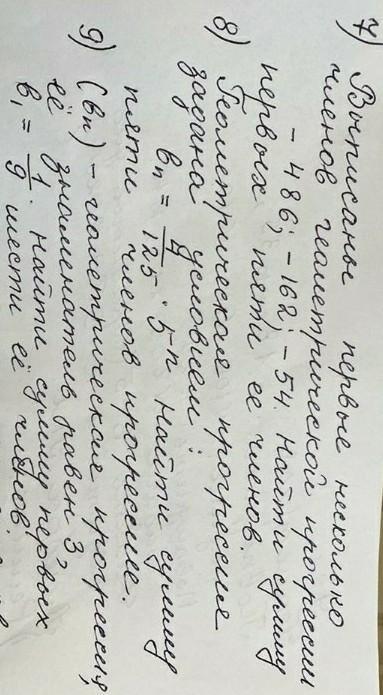 7) Выписаны первые несколько
членов геометрической прогрессии
- 486; -162; -54. найти сумму
первых пяти ее членов.
8) Геометрическая прогрессия
задана условием:
bn = 4/125 · 5ⁿ найти сумму
пяти членов прогрессие.
9) (bn) - геометрическая прогрессия,
её знаменатель равен 3,
b₁ = 1/9. найти сумму первых
шести её членов.